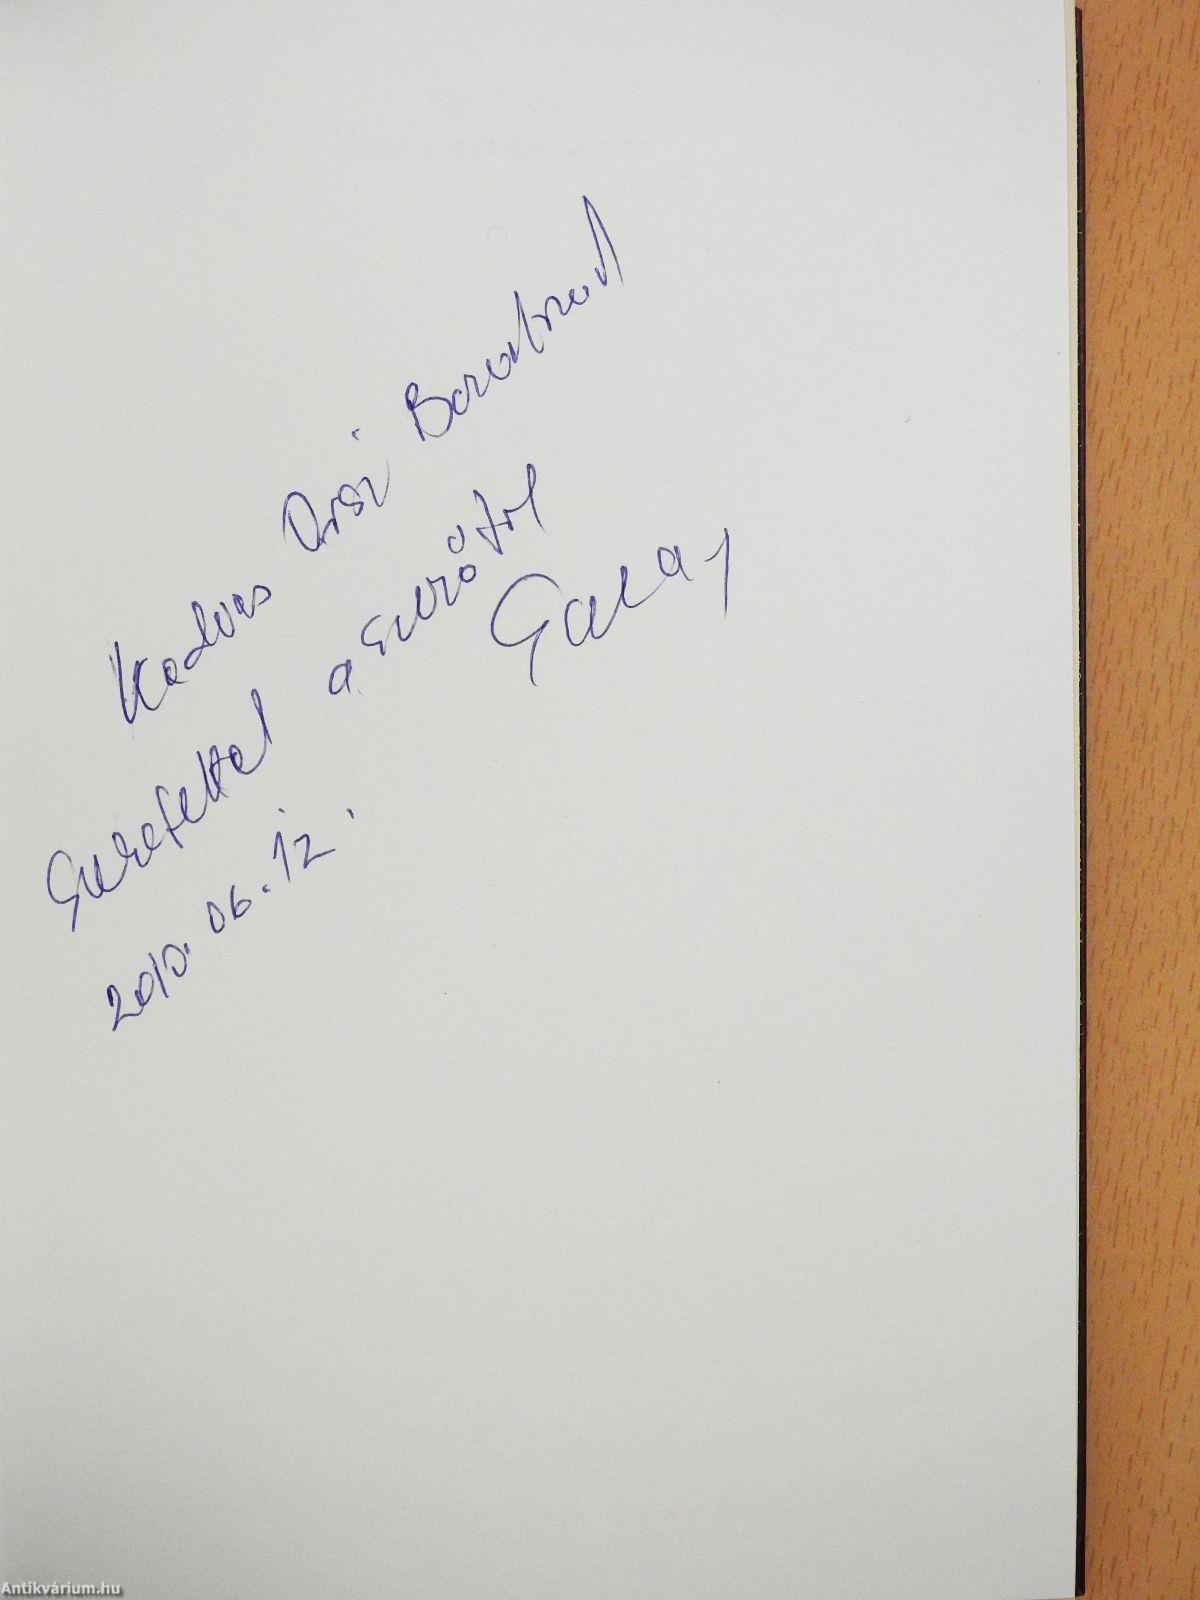 Kedves Orsi Barátnak
Szeretettel a szerzőtől
Garay
2010. 06. 12.
Antikvárium.hu